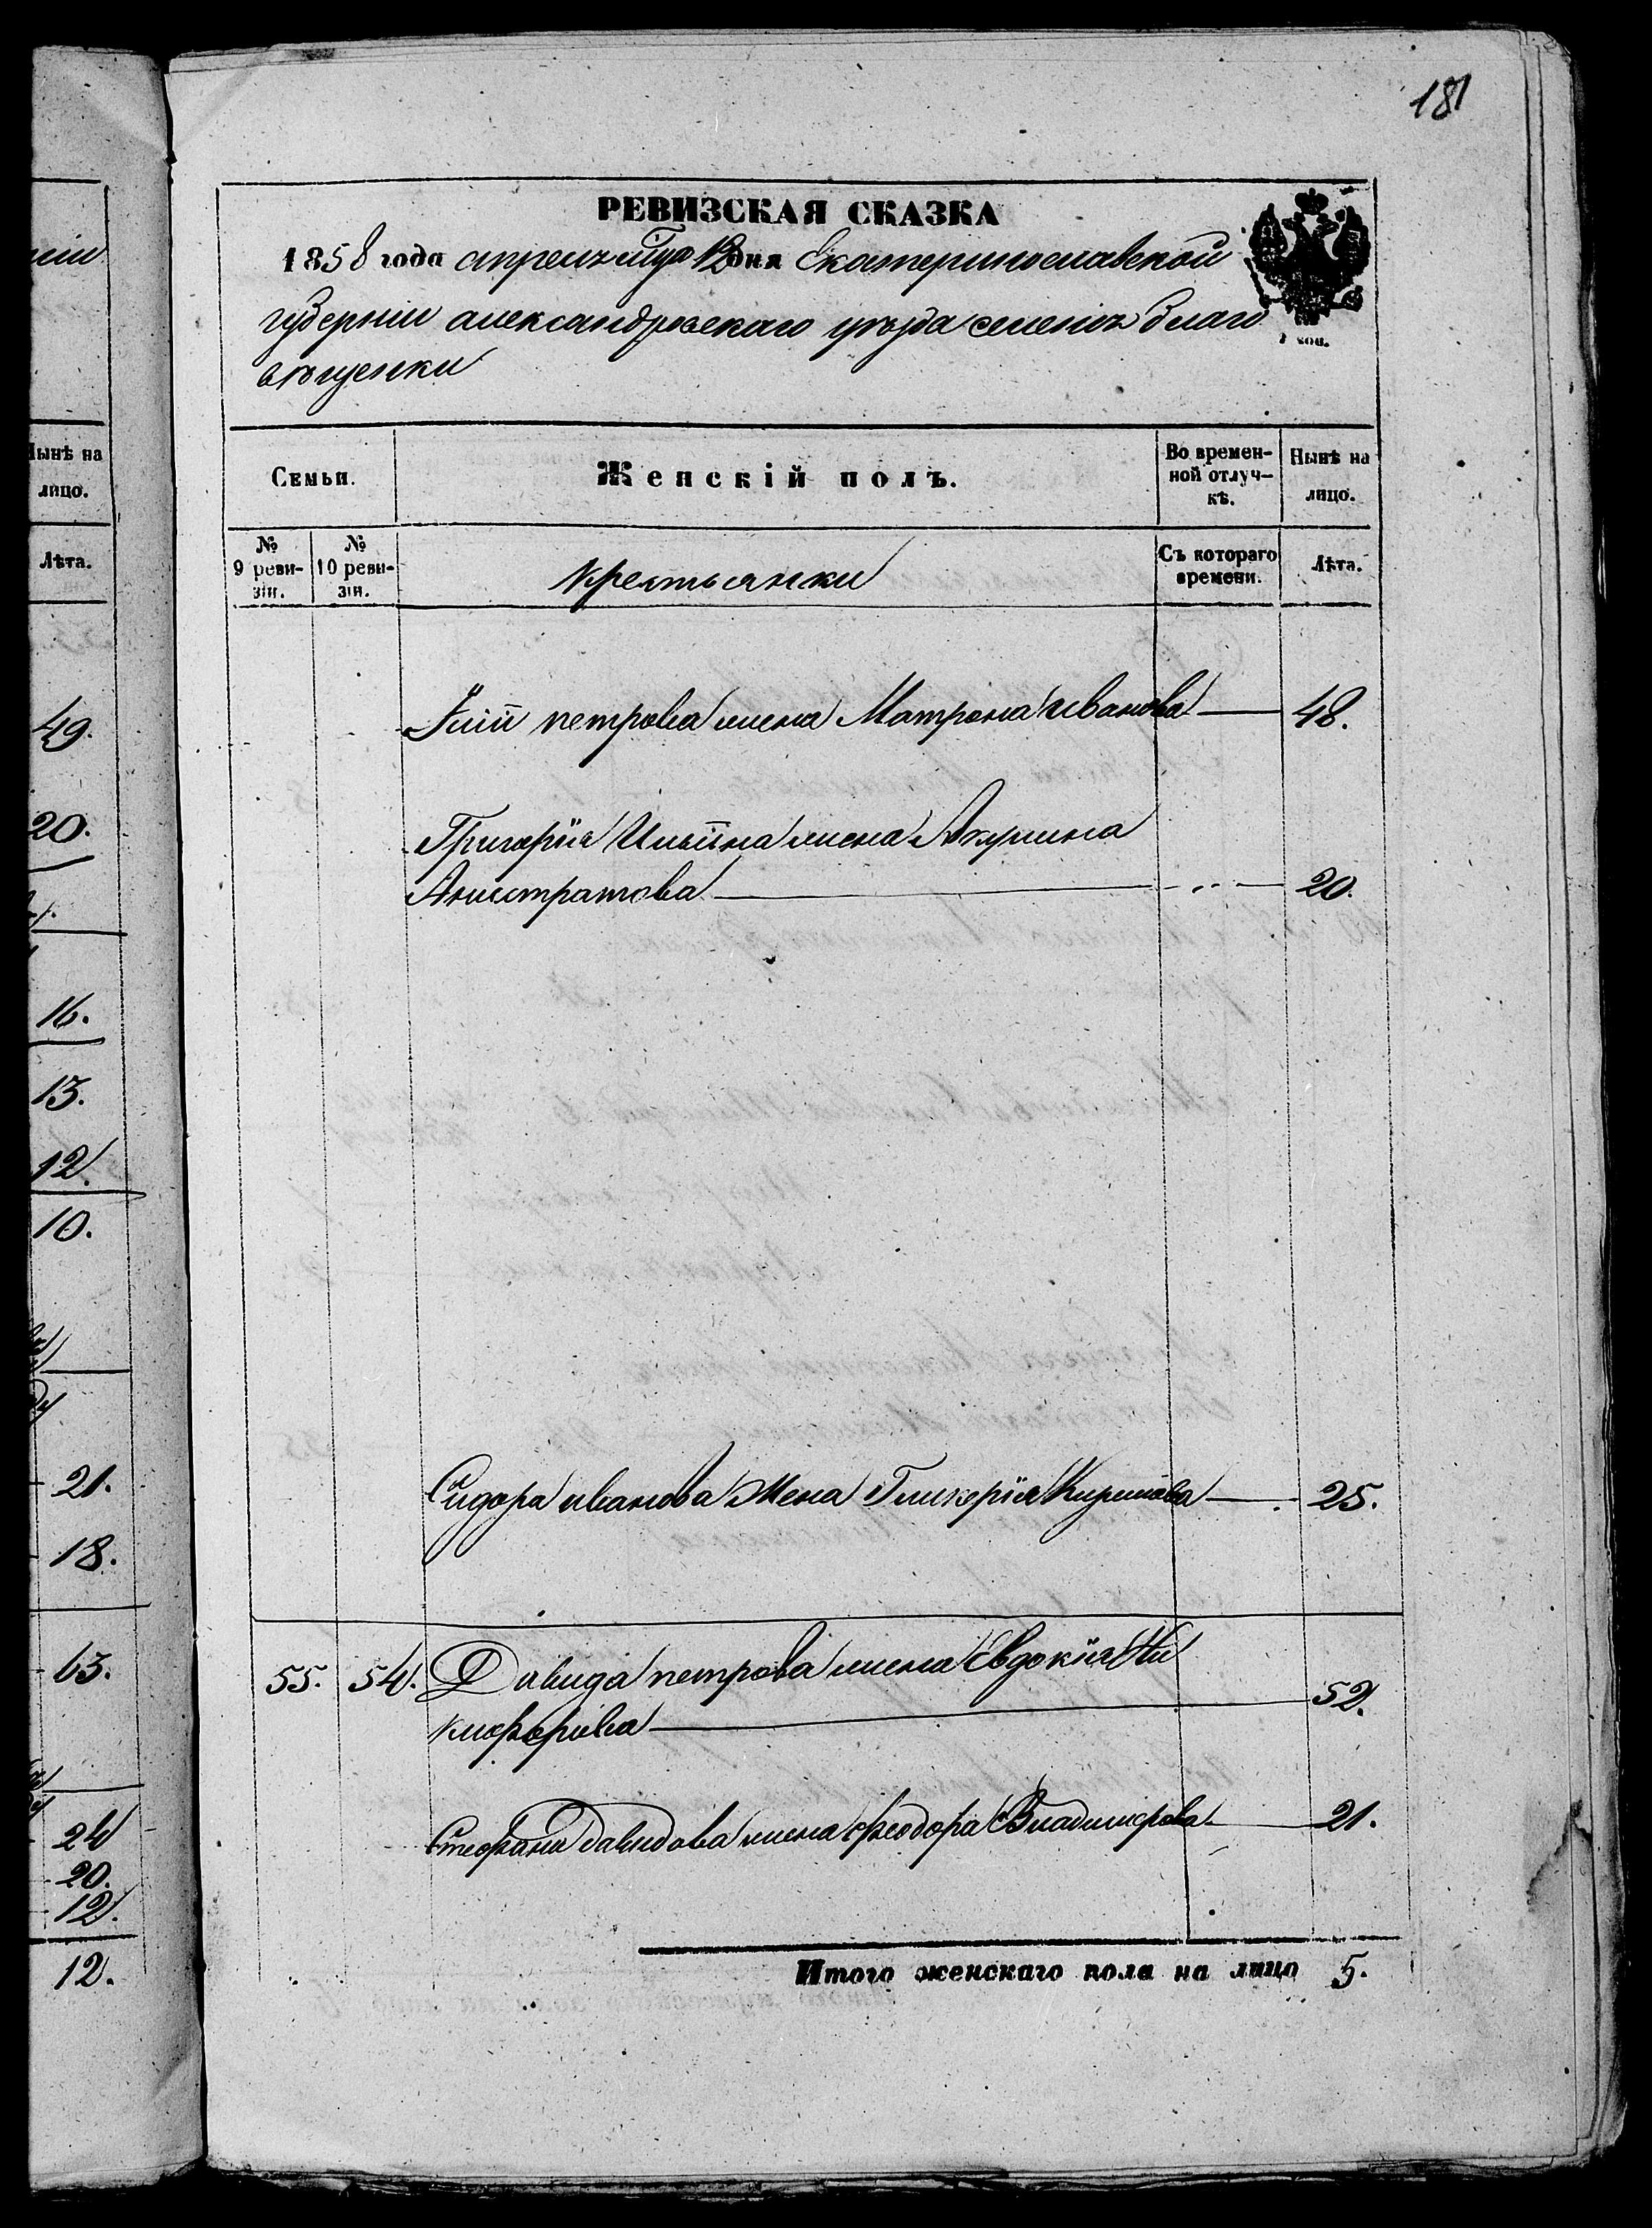 181
РЕВИЗСКАЯ СКАЗКА
1858 года апреля мца 12 дня Екатеринославской
губерніи александровскаго уѣзда селенія благо
вѣщенки
1 коп.
Семьи.
Женскій полъ.
Во времен-
ной отлуч-
кѣ.
Нынѣ на
лицо.
№
9 реви-
зіи.
№
10 реви-
зіи.
крестьянки
Съ котораго
времени.
Лѣта.
петрова жена Матрона иванова 48.
Григорія Ильина жена Акулина
Анистратова 20.
Сидора иванова Жена Гликерія Кирилова 25.
55. 54. Давида петрова жена Евдокія Ни
кифорова 52.
Стефана Давидова жена феодора Владимерова 21.
Итого женскаго пола на лицо 5.
Нынѣ на
лицо.
Лѣта.
49.
20.
16.
13.
12.
10.
21.
18.
63.
24
20.
12.
12.